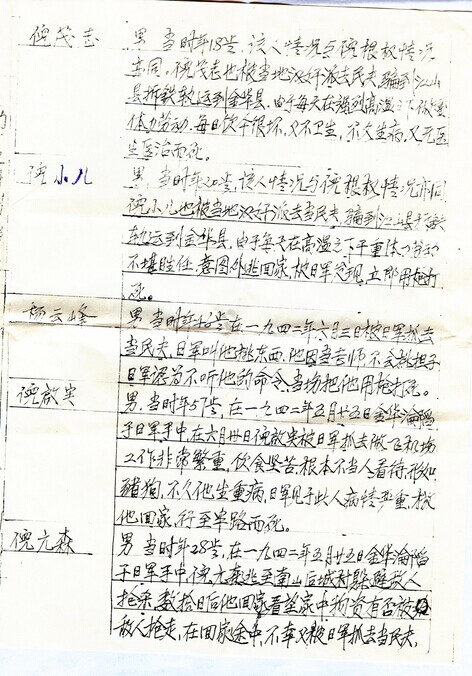 倪茂志
男 当时年18岁，该人情况与倪根权情况
亦同，倪茂志也被当地汉奸派去民夫，骗到江山
县拆铁轨运到金华县，由于每天在强烈高温之下做重
体力劳动，每日饮食很坏，又不卫生，不久生病，又无医
生医治而死。
倪小儿
男，当时年20岁，该人情况与倪根权情况亦同
倪小儿也被当地汉奸派去当民夫，骗到江山县拆铁
轨运到金华县，由于每天在高温之下平重体力劳动
不堪胜任，意图外逃回家，被日军发现，立即用枪打
死。
杨云峰
男 当时年 岁在一九四二年六月三日被日军抓去
当民夫，日军叫他挑东西，他因是 师不会挑担子
日军认为不听他的命令当场把他用枪打死。
倪啟
男，当时年57岁，在一九四二年五月廿五日金华沦陷
于日军手中，在六月廿日倪啟 被日军抓去做飞机场
工作非常繁重，饮食坚苦，根本不当人看待，形如
豬狗，不久他生重病，日军见于此人病情严重，放
他回家，行至半路而死。
倪元森
男 当时年28岁，在一九四二年五月廿五日金华沦陷
于日军手中，倪元森逃至南山后城村躲避敌人
抢杀，数拾日后他回家看望家中物资有否被
敌人抢走，在回家途中，不幸又被日军抓去当民夫，